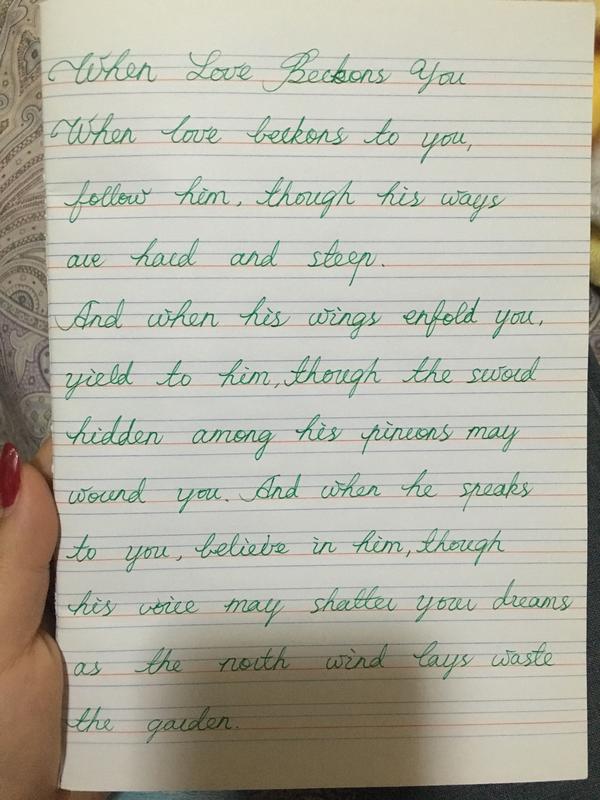 When Love Beckons You
When love beckons to you,
follow him, though his ways
are hard and steep.
And when his wings enfold you,
yield to him, though the sword
hidden among his pinions may
wound you. And when he speaks
to you, believe in him, though
his voice may shatter your dreams
as the north wind lays waste
the garden.